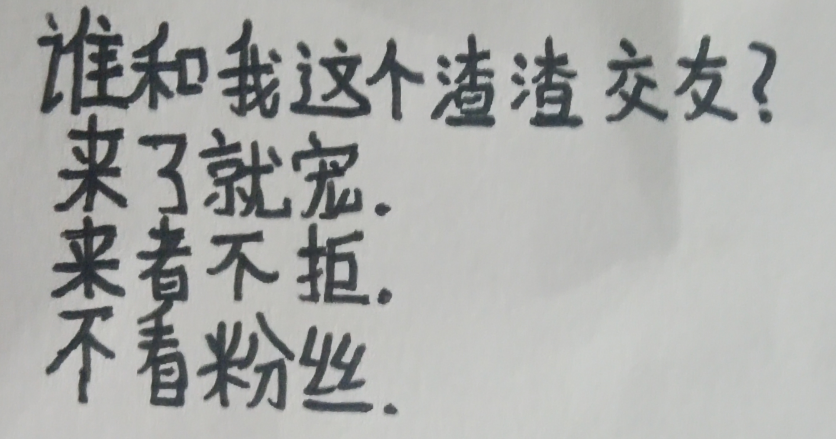 谁和我这个渣渣交友?
来了就宠.
来者不拒.
不看粉丝.